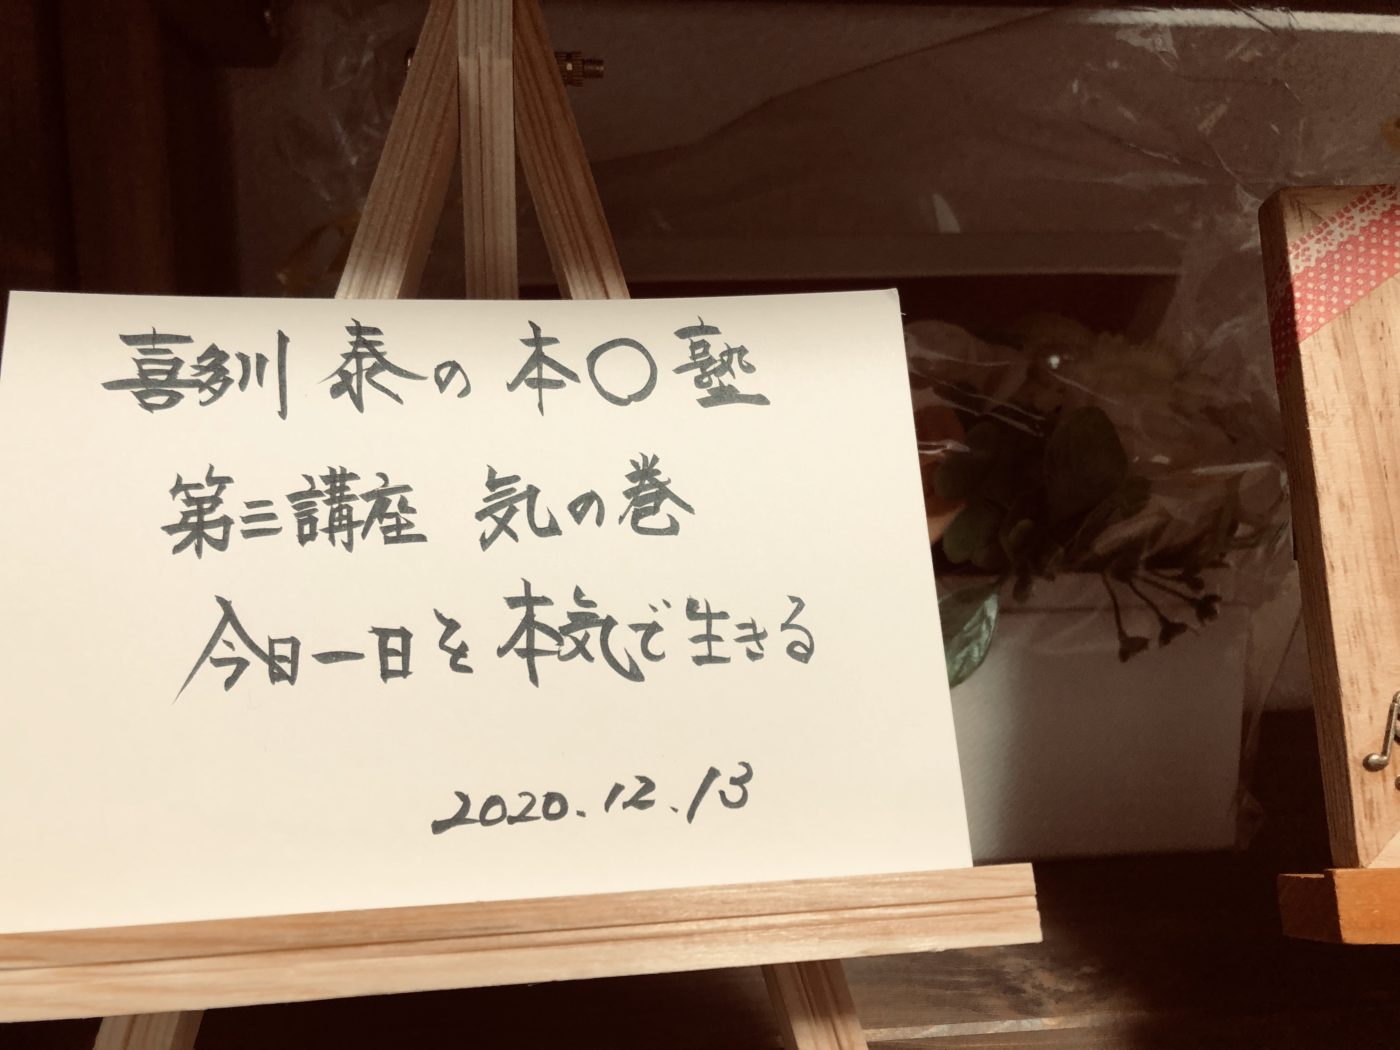 喜多川 泰の 本〇塾
第三講座 気の巻
今日一日を本気で生きる
2020.12.13